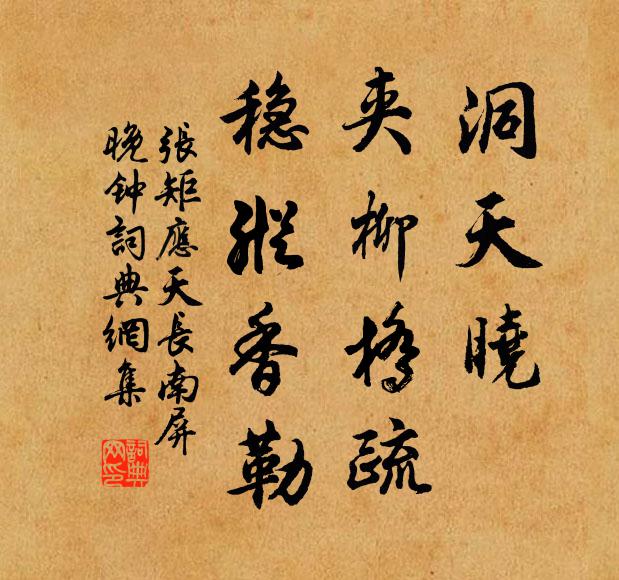 洞天曉
夾柳橋疏
穏縱香勒
張矩應天長南屏
晚钟詞典網集
詞典網印